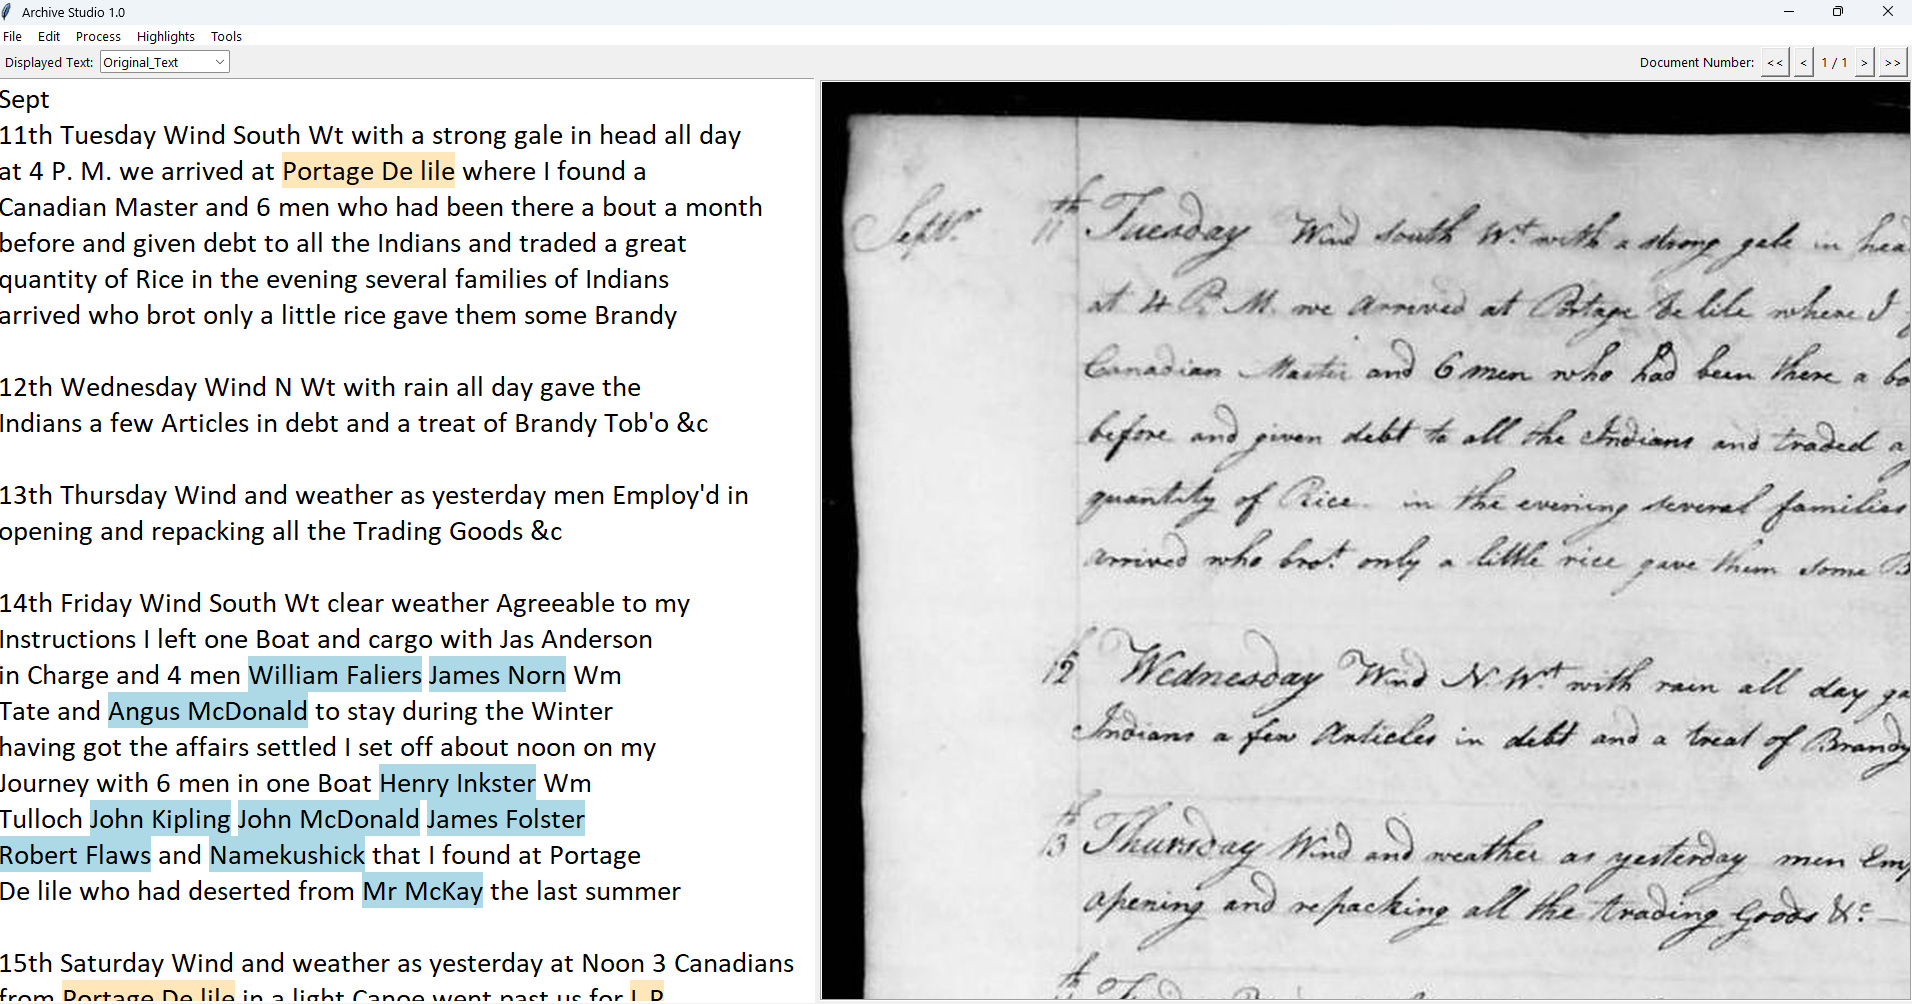 Archive Studio 1.0
File Edit Process Highlights Tools
Displayed Text: Original_Text
Document Number: << < 1 / 1 > >>
Sept
11th Tuesday Wind South Wt with a strong gale in head all day
at 4 P. M. we arrived at Portage De lile where I found a
Canadian Master and 6 men who had been there a bout a month
before and given debt to all the Indians and traded a great
quantity of Rice in the evening several families of Indians
arrived who brot only a little rice gave them some Brandy
12th Wednesday Wind N Wt with rain all day gave the
Indians a few Articles in debt and a treat of Brandy Tob'o &c
13th Thursday Wind and weather as yesterday men Employ'd in
opening and repacking all the Trading Goods &c
14th Friday Wind South Wt clear weather Agreeable to my
Instructions I left one Boat and cargo with Jas Anderson
in Charge and 4 men William Faliers James Norn Wm
Tate and Angus McDonald to stay during the Winter
having got the affairs settled I set off about noon on my
Journey with 6 men in one Boat Henry Inkster Wm
Tulloch John Kipling John McDonald James Folster
Robert Flaws and Namekushick that I found at Portage
De lile who had deserted from Mr McKay the last summer
15th Saturday Wind and weather as yesterday at Noon 3 Canadians
from Portage De lile in a light Canoe went past us for L P
Septr. 11th Tuesday Wind south Wt with a strong gale in hea
at 4 P. M. we Arrived at Portage De lile where I
Canadian Master and 6 men who had been there a bo
before and given debt to all the Indians and traded a g
quantity of Rice. in the evening several families
arrived who brot. only a little rice gave them some B
12th Wednesday Wind N. Wt with rain all day ga
Indians a few Articles in debt and a treat of Brandy
13th Thursday Wind and weather as yesterday men Emp
opening and repacking all the trading Goods &c. —